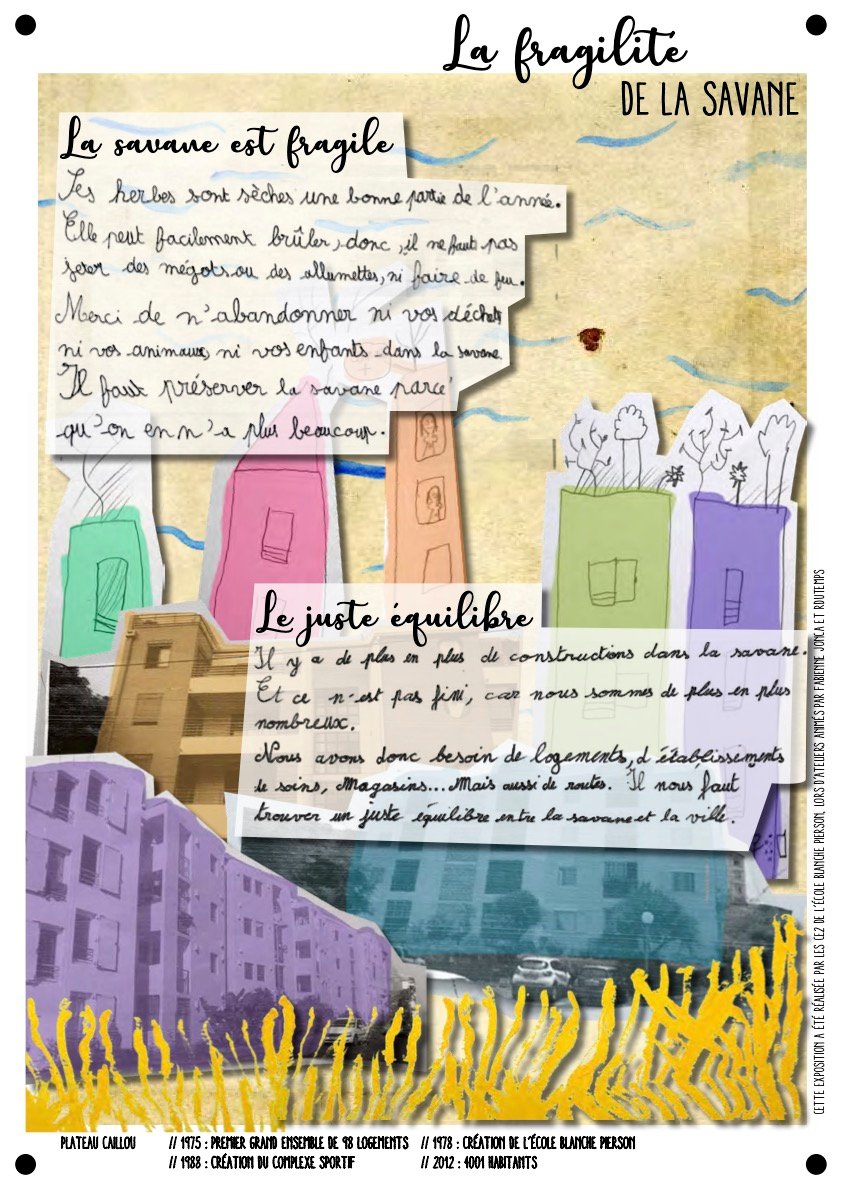 La fragilité
DE LA SAVANE
La savane est fragile
Ses herbes sont sèches une bonne partie de l'année.
Elle peut facilement brûler, donc, il ne faut pas
jeter des mégots ou des allumettes, ni faire de feu.
Merci de n'abandonner ni vos déchets
ni vos animaux, ni vos enfants dans la savane.
Il faut préserver la savane parce
qu'on en n'a plus beaucoup.
Le juste équilibre
Il y a de plus en plus de constructions dans la savane.
Et ce n'est pas fini, car nous sommes de plus en plus
nombreux.
Nous avons donc besoin de logements, d'établissements
de soins, magasins... Mais aussi de routes. Il nous faut
trouver un juste équilibre entre la savane et la ville.
CETTE EXPOSITION A ÉTÉ RÉALISÉE PAR LES CE2 DE L'ÉCOLE BLANCHE PIERSON, LORS D'ATELIERS ANIMÉS PAR FABIENNE JONCA ET ROUTEMPS
PLATEAU CAILLOU // 1975 : PREMIER GRAND ENSEMBLE DE 98 LOGEMENTS // 1978 : CRÉATION DE L'ÉCOLE BLANCHE PIERSON
// 1988 : CRÉATION DU COMPLEXE SPORTIF // 2012 : 4001 HABITANTS